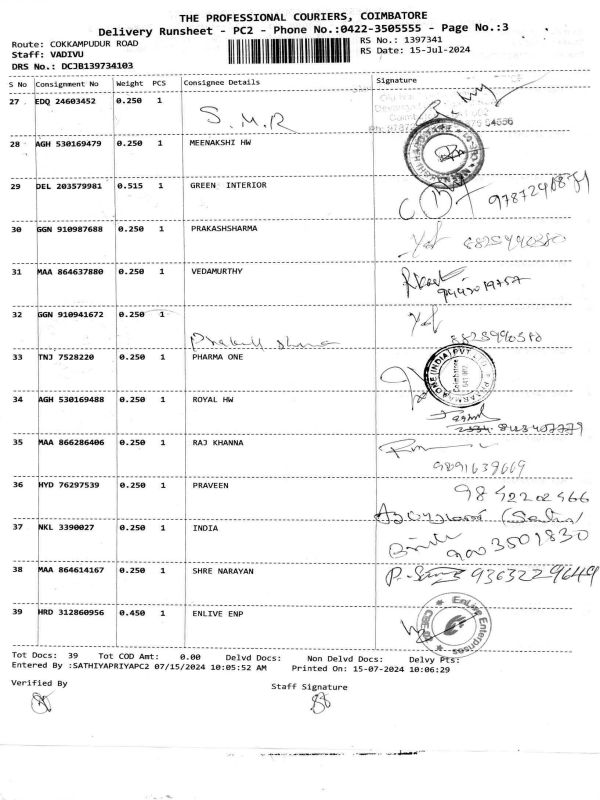 THE PROFESSIONAL COURIERS, COIMBATORE
Delivery Runsheet - PC2 - Phone No.:0422-3505555 - Page No.:3
Route: COKKAMPUDUR ROAD RS No.: 1397341
Staff: VADIVU RS Date: 15-Jul-2024
DRS No.: DCJB139734103
S No Consignment No Weight PCS Consignee Details Signature
27 EDQ 24603452 0.250 1 S.M.R
28 AGH 530169479 0.250 1 MEENAKSHI HW
29 DEL 203579981 0.515 1 GREEN INTERIOR
30 GGN 910987688 0.250 1 PRAKASHSHARMA 8825990380
31 MAA 864637880 0.250 1 VEDAMURTHY
32 GGN 910941672 0.250 1 8825990380
33 TNJ 7528220 0.250 1 PHARMA ONE
34 AGH 530169488 0.250 1 ROYAL HW
35 MAA 866286406 0.250 1 RAJ KHANNA 9891639669
36 HYD 76297539 0.250 1 PRAVEEN 9842202466
37 NKL 3390027 0.250 1 INDIA 9003501830
38 MAA 864614167 0.250 1 SHRE NARAYAN 9363229649
39 HRD 312860956 0.450 1 ENLIVE ENP EnLive Enterprises
Tot Docs: 39 Tot COD Amt: 0.00 Delvd Docs: Non Delvd Docs: Delvy Pts:
Entered By :SATHIYAPRIYAPC2 07/15/2024 10:05:52 AM Printed On: 15-07-2024 10:06:29
Verified By Staff Signature